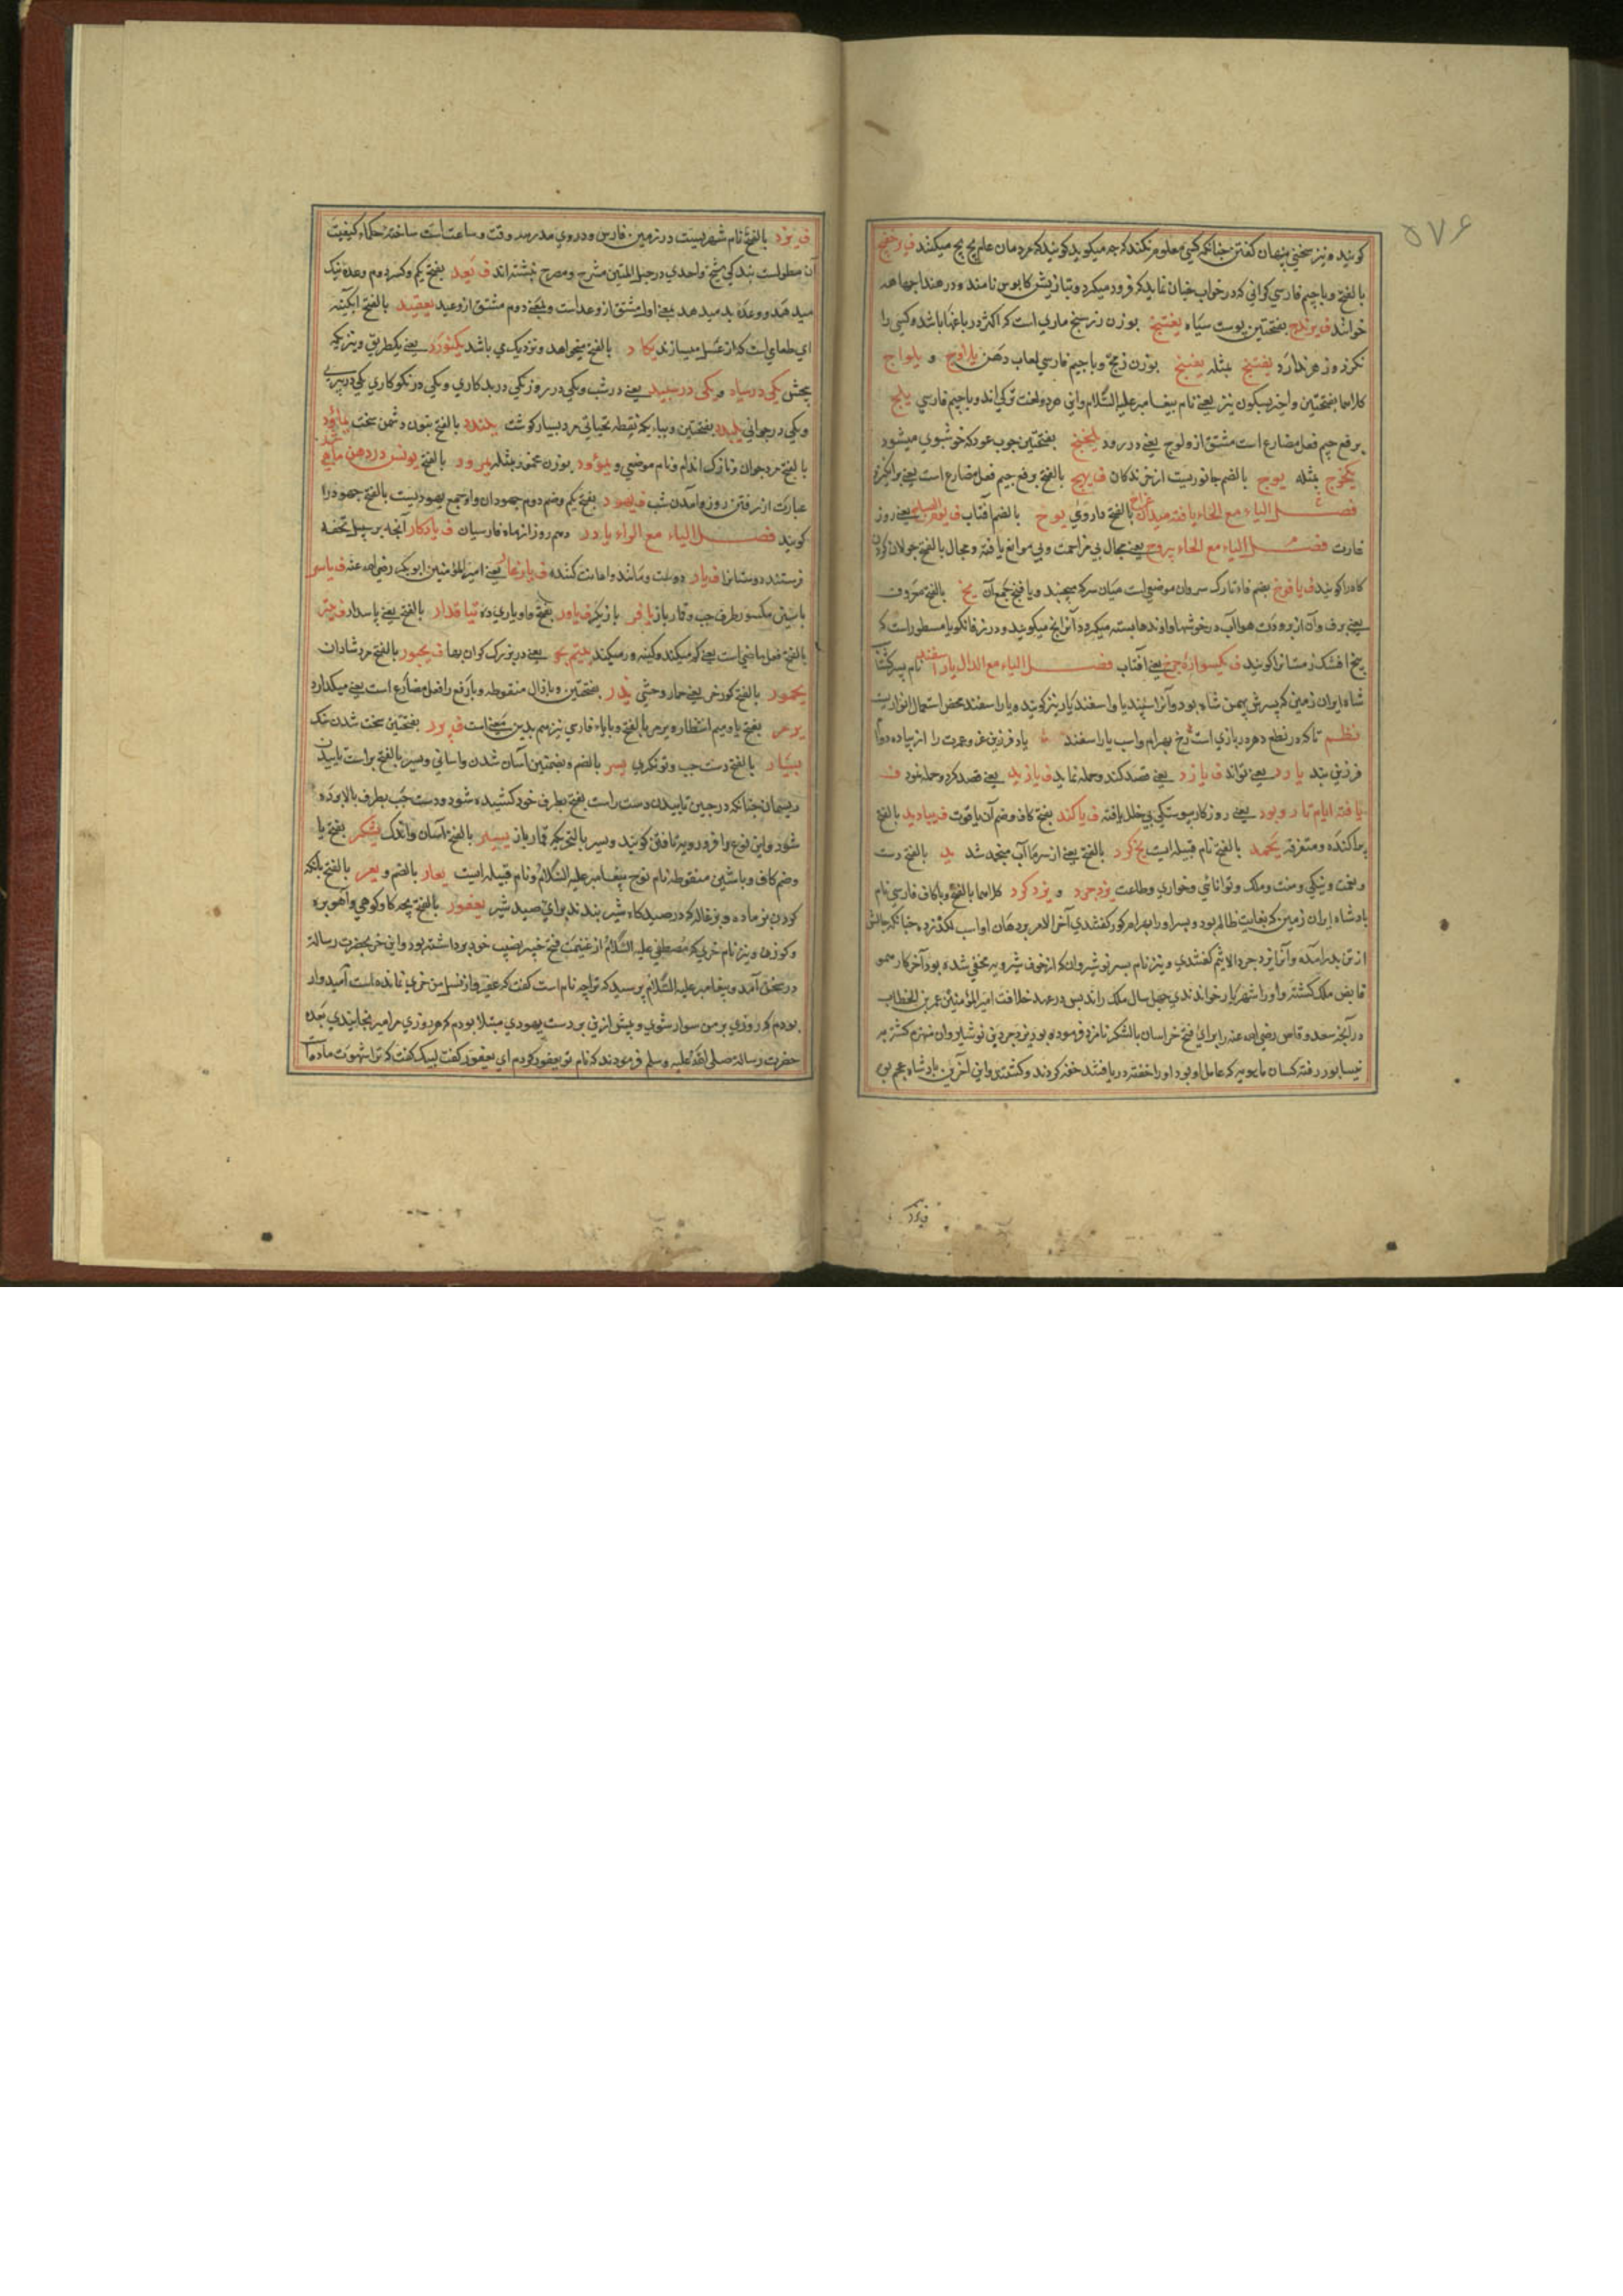 ۵۷۶
کویند و نیز سخنی پنهان کفتن چنانکه کسی معلوم نکند که چه میکوید کویند که مردمان علم پچ پچ میکنند ف
بالفتح و باجیم فارسی کرانی که در خواب چنان نماید که فرود میکرد و بتازیش کابوس نامند و در هند
خوانند ف یرندج بفتحتین پوست سیاه یفتنج بوزن ماری است که اکثر در باغها باشد و کسی را
نکزد و زهر ندارد یفتنج بمثله یفتنج بوزن و باجیم فارسی لعاب دهن و یلواج
کلاهما بفتحتین نیز یعنی نام پیغامبر علیه السلام و این هر دو لغت ترکی اند و باجیم فارسی یلج
برفع جیم فعل مضارع است مشتق از ولوج یعنی در رود یلنجج بفتحتین چوب عود که خوشبوی میشود
بمثله یوج بالضم جانوریست از خزندکان ف یهج بالفتح برفع جیم فعل مضارع است یعنی
فصل الیاء مع الحاء بالفتح داروی یوح بالضم آفتاب ف یعنی روز
غارت فصل الیاء مع الخاء یعنی مجال بی مزاحمت و بی موانع یافته و مجال بالفتح جولان کردن
کاه را کویند ف یافوخ بضم فاء تارک سر و ان موضعی است میان سر که میجنبد و یافخ جمع آن یخ بالفتح معروف
یعنی برف و آن از برودت هوا آب در خوشها و اوندها بسته میکردد آنرا یخ میکویند و در زفانکویا مسطور است که
یخ افشک زمستانرا کویند ف یعنی آفتاب فصل الیاء مع الدال یار اسفند نام پسر
شاه ایران زمین که پسرش بهمن شاه بود و آنرا اسپندیار و اسفندیار نیز کویند و یار اسفند محض استعمال
نظم تا که در نطع دهر بازی است رخ بهرام و اسب یار اسفند باد فرزین عز و عمرت را از پیاده دوام
فرزین بند یارد یعنی تواند ف یازد یعنی قصد کند و حمله نماید ف یازید یعنی قصد کرد و حمله نمود ف
یافته ایام تار و پود یعنی روزکار پیوستکی بی خلل یافته ف یاکند بفتح کاف و ضم آن یاقوت ف بالفتح
پراکنده و متفرقه یحمد بالفتح نام قبیله ایست یخ کرد بالفتح یعنی از سرما آب منجمد شد ید بالفتح دست
و نعمت و نیکی و منت و ملک و توانائی و خواری و طاعت یزدجرد و یزد کرد کلاهما بالفتح و باکاف فارسی نام
پادشاه ایران زمین که بغایت ظالم بود و پسر او را بهرام کور کفتندی آخر الامر بر دهان او اسب لکد زده چنانکه جانش
از تن بدر آمده و آنرا یزدجرد الاثیم کفتندی و نیز نام پسر نوشیروان که از خوف شرویه مخفی شده بود آخر کار همو
قابض ملک کشته و او را شهریار خواندندی چهل سال ملک راند پس در عهد خلافت امیر المؤمنین عمر بن الخطاب
در آنکه سعد وقاص رضی الله عنه را برای فتح خراسان بالشکر نامزد فرموده بود یزدجرد بن نوشیروان منهزم کشته در
نیسابور رفته کسان که عامل او بود او را خفته دریافتند خفه کردند و کشتند و این آخرین پادشاه عجم بود
ف یزد بالفتح نام شهریست در زمین فارس و در وی مدرسه وقت و ساعت است ساخته حکماء کیفیت
آن مطولست بندکی شیخ واحدی در حبل المتین مشرح و مصرح نبشته اند ف یعد بفتح یکم و کسر دوم وعده نیک
میدهد و وعده بد میدهد بمعنی اول مشتق از وعد است و بمعنی دوم مشتق از وعید یعقید بالفتح آبکینه
ای طعامی است که از عسل میسازند یکاد بالفتح میخواهد و نزدیک می باشد یکنورد یعنی یکطریق و نیز یکه
بخش یکی در سیاه و یکی در سپید یعنی در شب و یکی در روز یکی در بدکاری و یکی در نکوکاری یکی در پیری
و یکی در جوانی یلبد بفتحتین و بباء یک نقطه تحتانی مرد بسیار کوشت یلندد بالفتح بنون دشمن سخت
بالفتح مرد جوان و نازک اندام و نام موضعی و یمؤود بوزن محمود بمثله یمرود بالفتح یونس در دهن ماهی شد
عبارت از رفتن روز و آمدن شب ف یهود بفتح یکم و ضم دوم جهودان و او جمع یهودیست بالفتح جهود را
کویند فصل الیاء مع الراء یادر دهم روز از ماه فارسیان ف یادکار آنچه بر سبیل تحفه
فرستند دوستانرا ف یار دوست و مانند و اعانت کننده ف یار غار یعنی امیر المؤمنین ابوبکر رضی الله عنه ف یاسر
باسین مکسور طرف چپ و قارباز یافر بازیکر ف یاور بفتح واو یاری ده یتاقدار بالفتح یعنی پاسدار ف یتر
بالفتح فعل ماضی است یعنی کم میکند و کینه ور میکند یتیم بحر یعنی در بزرک کران بها ف یحبور بالفتح مرد شادان
یحمور بالفتح کور خر یعنی حمار وحشی یذر بفتحتین و باذال منقوطه و بارفع را فعل مضارع است یعنی میکذارد
یرمر بفتح یا و میم انتظار و یرمر بالفتح و باباء فارسی نیز هم بدین معنی است ف یزر بفتحتین سخت شدن سنک
یسار بالفتح دست چپ و تونکری یسر بالضم و بضمتین آسان شدن و اسانی و یسر بالفتح براست تابیدن
ریسمان چنانکه در حین تابیدن دست راست بفتح بطرف خود کشیده شود و دست چپ بطرف بالا برده
شود و این نوع را فرودویه تافتن کویند و یسر بالتحریک قمارباز یسیر بالفتح آسان و اندک یشکر بفتح یا
و ضم کاف و باشین منقوطه نام نوح پیغامبر علیه السلام و نام قبیله ایست یعار بالضم و یعر بالفتح بانک
کردن بز ماده و بزغاله که در صیدکاه شیر بندند برای صید شیر یعفور بالفتح بچه کاو کوهی و آهو بره
و کوزن و نیز نام خری که مصطفی علیه السلام از غنیمت فتح خیبر نصیب خود برداشته بود و این خر بحضرت رسالة
در سخن آمد و پیغامبر علیه السلام پرسید که ترا چه نام است کفت که عفیر و از نسل من خری نمانده است آمیدوار
بودم که روزی بر من سوار شوی و پیش ازین بر دست یهودی مبتلا بودم که هر روزی مرا میرنجانیدی بعده
حضرت رسالة صلی الله علیه وسلم فرمودند که نام تو یعفور کردم ای یعفور کفت لبیک کفت که ترا شهوت ماده